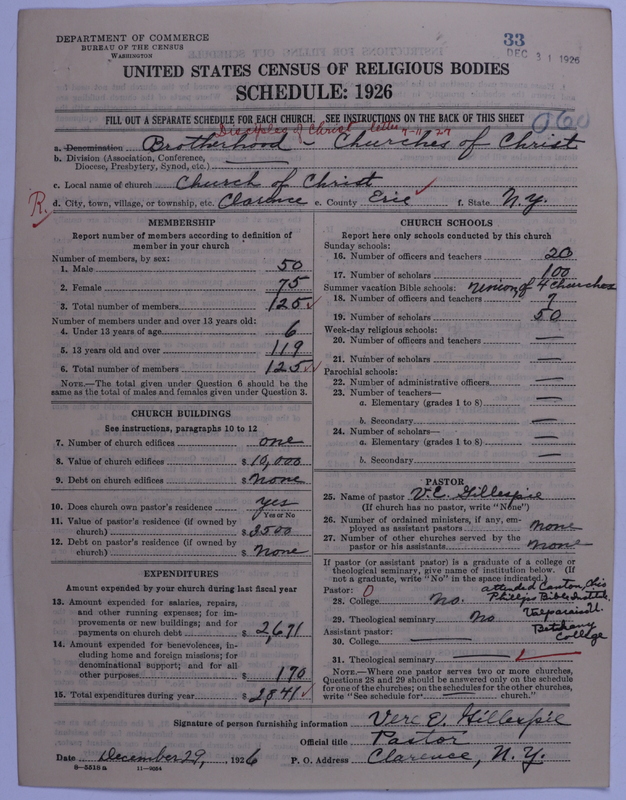 DEPARTMENT OF COMMERCE
BUREAU OF THE CENSUS
WASHINGTON
33
DEC 31 1926
UNITED STATES CENSUS OF RELIGIOUS BODIES
SCHEDULE: 1926
FILL OUT A SEPARATE SCHEDULE FOR EACH CHURCH. SEE INSTRUCTIONS ON THE BACK OF THIS SHEET
060
Disciples of Christ letter 7-11-27
a. Denomination Brotherhood - Churches of Christ
b. Division (Association, Conference,
Diocese, Presbytery, Synod, etc.)
c. Local name of church Church of Christ
R. d. City, town, village, or township, etc. Clarence e. County Erie f. State N.Y.
MEMBERSHIP
Report number of members according to definition of
member in your church
Number of members, by sex:
1. Male 50
2. Female 75
3. Total number of members 125
Number of members under and over 13 years old:
4. Under 13 years of age 6
5. 13 years old and over 119
6. Total number of members 125
NOTE.—The total given under Question 6 should be the
same as the total of males and females given under Question 3.
CHURCH BUILDINGS
See instructions, paragraphs 10 to 12
7. Number of church edifices one
8. Value of church edifices $ 10,000
9. Debt on church edifices $ None
10. Does church own pastor's residence yes
Yes or No
11. Value of pastor's residence (if owned by
church) $ 2500
12. Debt on pastor's residence (if owned by
church) $ None
EXPENDITURES
Amount expended by your church during last fiscal year
13. Amount expended for salaries, repairs,
and other running expenses; for im-
provements or new buildings; and for
payments on church debt $ 2,671
14. Amount expended for benevolences, in-
cluding home and foreign missions; for
denominational support; and for all
other purposes $ 170
15. Total expenditures during year $ 2841
CHURCH SCHOOLS
Report here only schools conducted by this church
Sunday schools:
16. Number of officers and teachers 20
17. Number of scholars 100
Summer vacation Bible schools: Union of 4 churches
18. Number of officers and teachers 7
19. Number of scholars 50
Week-day religious schools:
20. Number of officers and teachers —
21. Number of scholars —
Parochial schools:
22. Number of administrative officers —
23. Number of teachers—
a. Elementary (grades 1 to 8) —
b. Secondary —
24. Number of scholars—
a. Elementary (grades 1 to 8) —
b. Secondary —
PASTOR
25. Name of pastor V.E. Gillespie
(If church has no pastor, write "None")
26. Number of ordained ministers, if any, em-
ployed as assistant pastors none
27. Number of other churches served by the
pastor or his assistants none
If pastor (or assistant pastor) is a graduate of a college or
theological seminary, give name of institution below. (If
not a graduate, write "No" in the space indicated.)
Pastor: 0
attended Canton, Ohio
28. College No.
Phillips Bible Institute
Valparaiso U.
29. Theological seminary No
Bethany
College
Assistant pastor:
30. College
31. Theological seminary
NOTE.—Where one pastor serves two or more churches,
Questions 28 and 29 should be answered only on the schedule
for one of the churches; on the schedules for the other churches,
write "See schedule for — church."
Signature of person furnishing information Vere E. Gillespie
Official title Pastor
Date December 29, 1926 P. O. Address Clarence, N.Y.
8—5518 a 11—9064